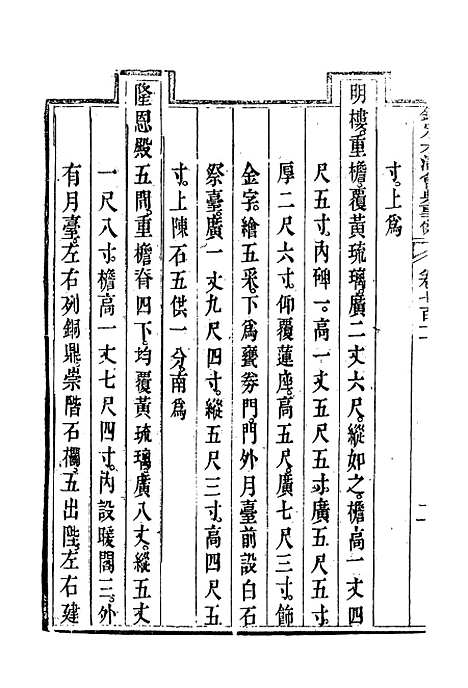 欽定大清會典事例 卷七百二
寸。上爲
明樓。重檐。覆黃琉璃。廣二丈六尺。縱如之。檐高一丈四
尺五寸。內碑一。高一丈五尺五寸。廣五尺五寸。
厚二尺六寸。仰覆蓮座。高五尺。廣七尺三寸。飾
金字。繪五采。下爲甕劵門。門外月臺。前設白石
祭臺。廣一丈九尺四寸。縱五尺三寸。高四尺五
寸。上陳石五供一分。南爲
隆恩殿五間。重檐脊四下。均覆黃琉璃。廣八丈。縱五丈
一尺八寸。檐高一丈七尺四寸。內設暖閣三。外
有月臺。左右列銅鼎。崇階石欄。五出陛。左右建